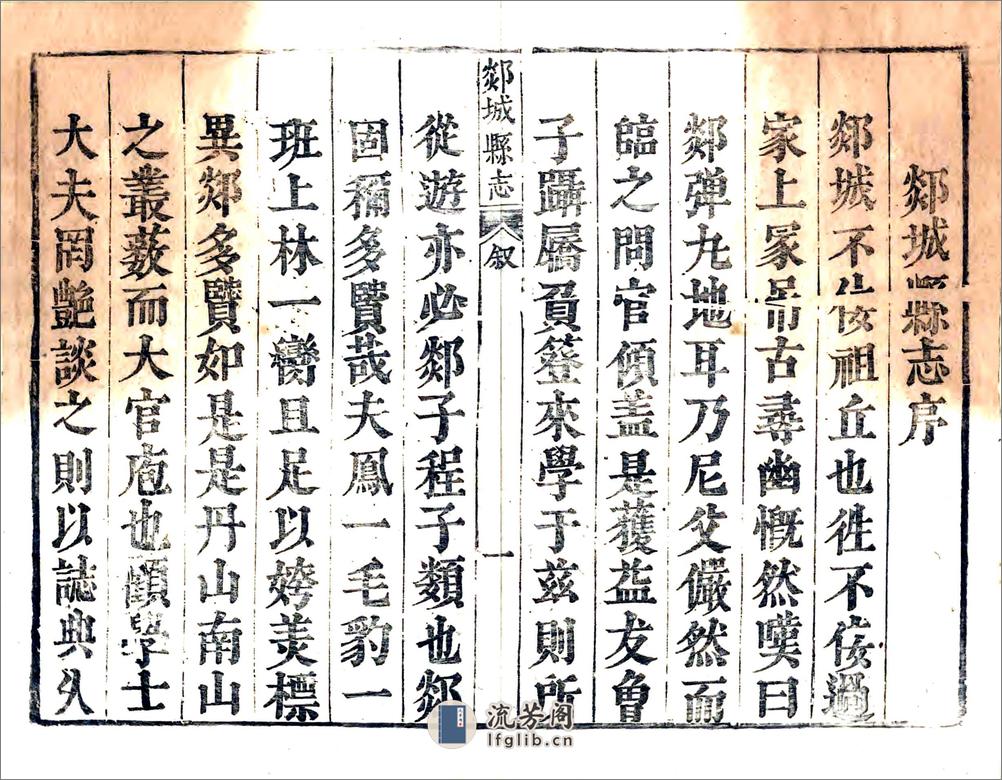 郯城縣志序
郯城不佞祖丘也徃不佞過
家上冡吊古尋幽慨然嘆曰
郯弹丸地耳乃尼父儼然而
臨之問官傾盖是獲益友魯
子躡屩負簦來學于兹則所
郯城縣志
叙
一
從遊亦必郯子程子類也郯
固稱多賢哉夫鳳一毛豹一
班上林一臠且足以姱美標
異郯多賢如是是丹山南山
之叢薮而大官庖也顧學士
大夫罔艶談之則以誌典久
流芳阁
lfglib.cn